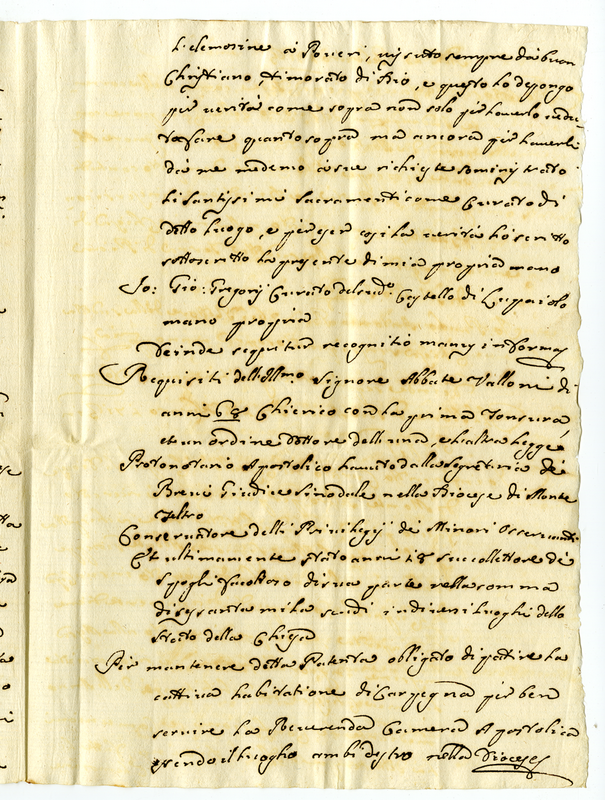 l'elemosine à Poveri, vissuto sempre da buon
Christiano, timorato di Dio, e questo hò depongo
per verità come sopra non solo per haverlo vedu-
to fare quanto sopra mà ancora per haverli
da me medemo à sue richieste somministrato
li Santissimi Sacramenti come Curato di
detto luogo, e per esser così la verità hò scritto
sottoscritto la presente di mia propria mano
Io: Gio: Gregorij Curato del sud.o Castello di Lupaiolo
mano propria
Deinde sequitur recognitio manus in forma
Requisiti dell'Illmo. Signore Abbate Valloni di
anni 68 Chierico con la prima Tonsura
et un ordine Dottore dell'una, e l'altra legge
Protonotario Apostolico havuto dalla Segretaria de
Brevi Giudice Sinodale nella Diocese di Monte
feltro
Conservatore delli Privilegij de Minori Osservanti
Et ultimamente stato anni 18 succollettore de
Spogli di sua parte nella somma
di sessanta mila scudi in diversi luoghi dello
Stato della Chiesa
Per mantenere detta Patente obligato di patire la
cattiva habitatione di Carpegna per ben
servire la Reverenda Camera Apostolica
essendo il luogho nella Diocese